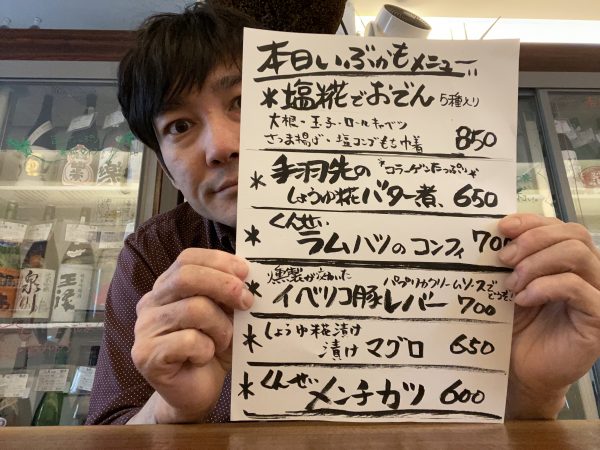 本日いぶかもメニュー
*塩糀でおでん 5種入り
大根・玉子・ロールキャベツ
さつま揚げ・塩コンブもち巾着 850
*手羽先の *コラーゲンたっぷり
しょうゆ糀バター煮、650
*くんせい
ラムハツのコンフィ 700
*燻製が
パプリカクリームソースで
イベリコ豚レバー 700
*しょうゆ糀漬け
漬けマグロ 650
*くんせい
メンチカツ 600